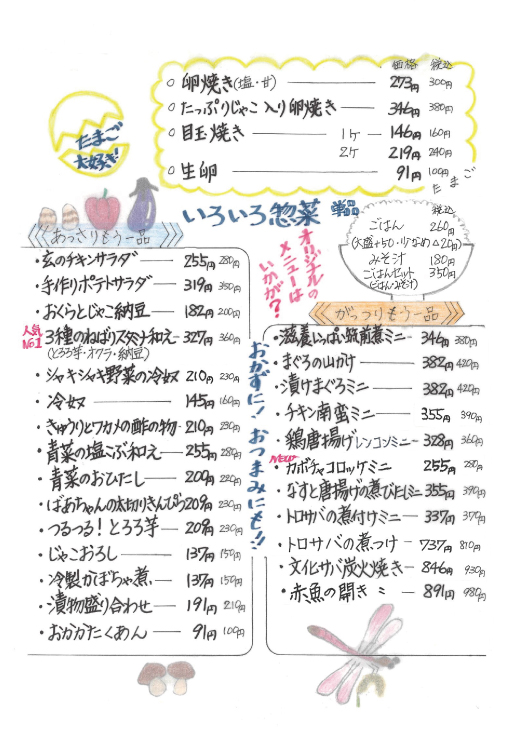 価格 税込
○ 卵焼き(塩・甘) 273円 300円
○ たっぷりじゃこ入り卵焼き 346円 380円
○ 目玉焼き 1ケ 146円 160円
2ケ 219円 240円
○ 生卵 91円 100円
たまご
たまご
大好き!
いろいろ惣菜 単品
オリジナルの
メニューは
いかが?
税込
ごはん 260円
(大盛+50・少なめ△20円)
みそ汁 180円
ごはんセット 350円
(ごはん・みそ汁)
あっさりもう一品
・玄のチキンサラダ 255円 280円
・手作りポテトサラダ 319円 350円
・おくらとじゃこ納豆 182円 200円
人気
No.1
・3種のねばりスタミナ和え 327円 360円
(とろろ芋・オクラ・納豆)
・シャキシャキ野菜の冷奴 210円 230円
・冷奴 145円 160円
・きゅうりとワカメの酢の物 210円 230円
・青菜の塩こぶ和え 255円 280円
・青菜のおひたし 200円 220円
・ばあちゃんの太切りきんぴら 209円 230円
・つるつる!とろろ芋 209円 230円
・じゃこおろし 137円 150円
・冷製かぼちゃ煮 137円 150円
・漬物盛り合わせ 191円 210円
・おかかたくあん 91円 100円
おかずに!おつまみにも!!
がっつりもう一品
・滋養いっぱい筑前煮ミニ 346円 380円
・まぐろの山かけ 382円 420円
・漬けまぐろミニ 382円 420円
・チキン南蛮ミニ 355円 390円
・鶏唐揚げレンコンミニ 328円 360円
NEW
・カボチャコロッケミニ 255円 280円
・なすと唐揚げの煮びたしミニ 355円 390円
・トロサバの煮付けミニ 337円 370円
・トロサバの煮つけ 737円 810円
・文化サバ炭火焼き 846円 930円
・赤魚の開き 891円 980円